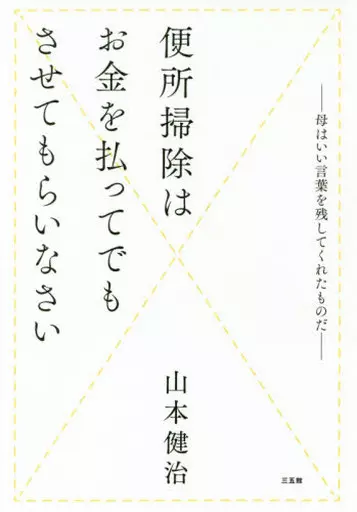 ――母はいい言葉を残してくれたものだ――
便所掃除は
お金を払ってでも
させてもらいなさい
山本健治
三五館